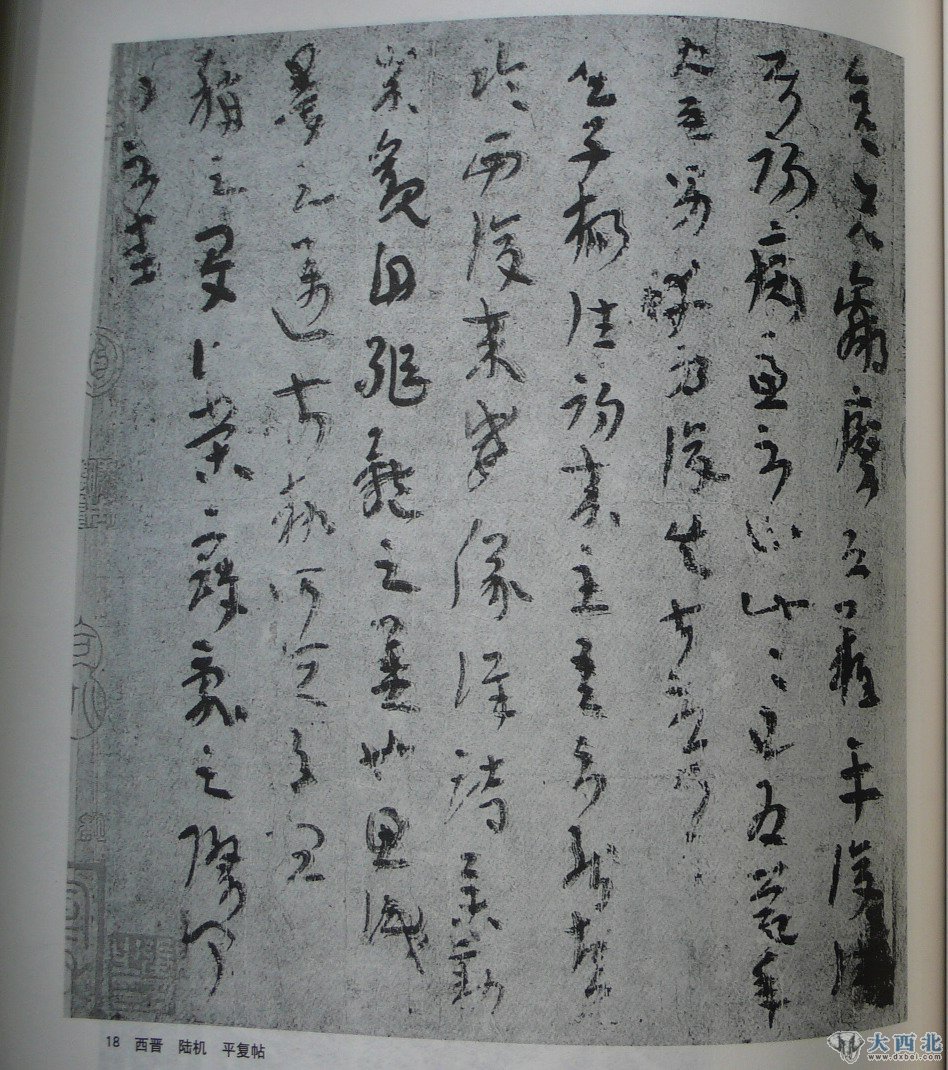 彦先羸瘵恐難平復往屬
初病慮不止此此已為慶承
使唯男幸為復失前憂耳
吳子楊往初來主吾不能盡
臨西復來威儀詳跱舉動
成觀自軀體之美也思識
量之邁前執所恒有宜
稱之夏伯榮寇亂之際聞
問不悉
18 西晋 陆机 平复帖
大西北
www.dzbei.com